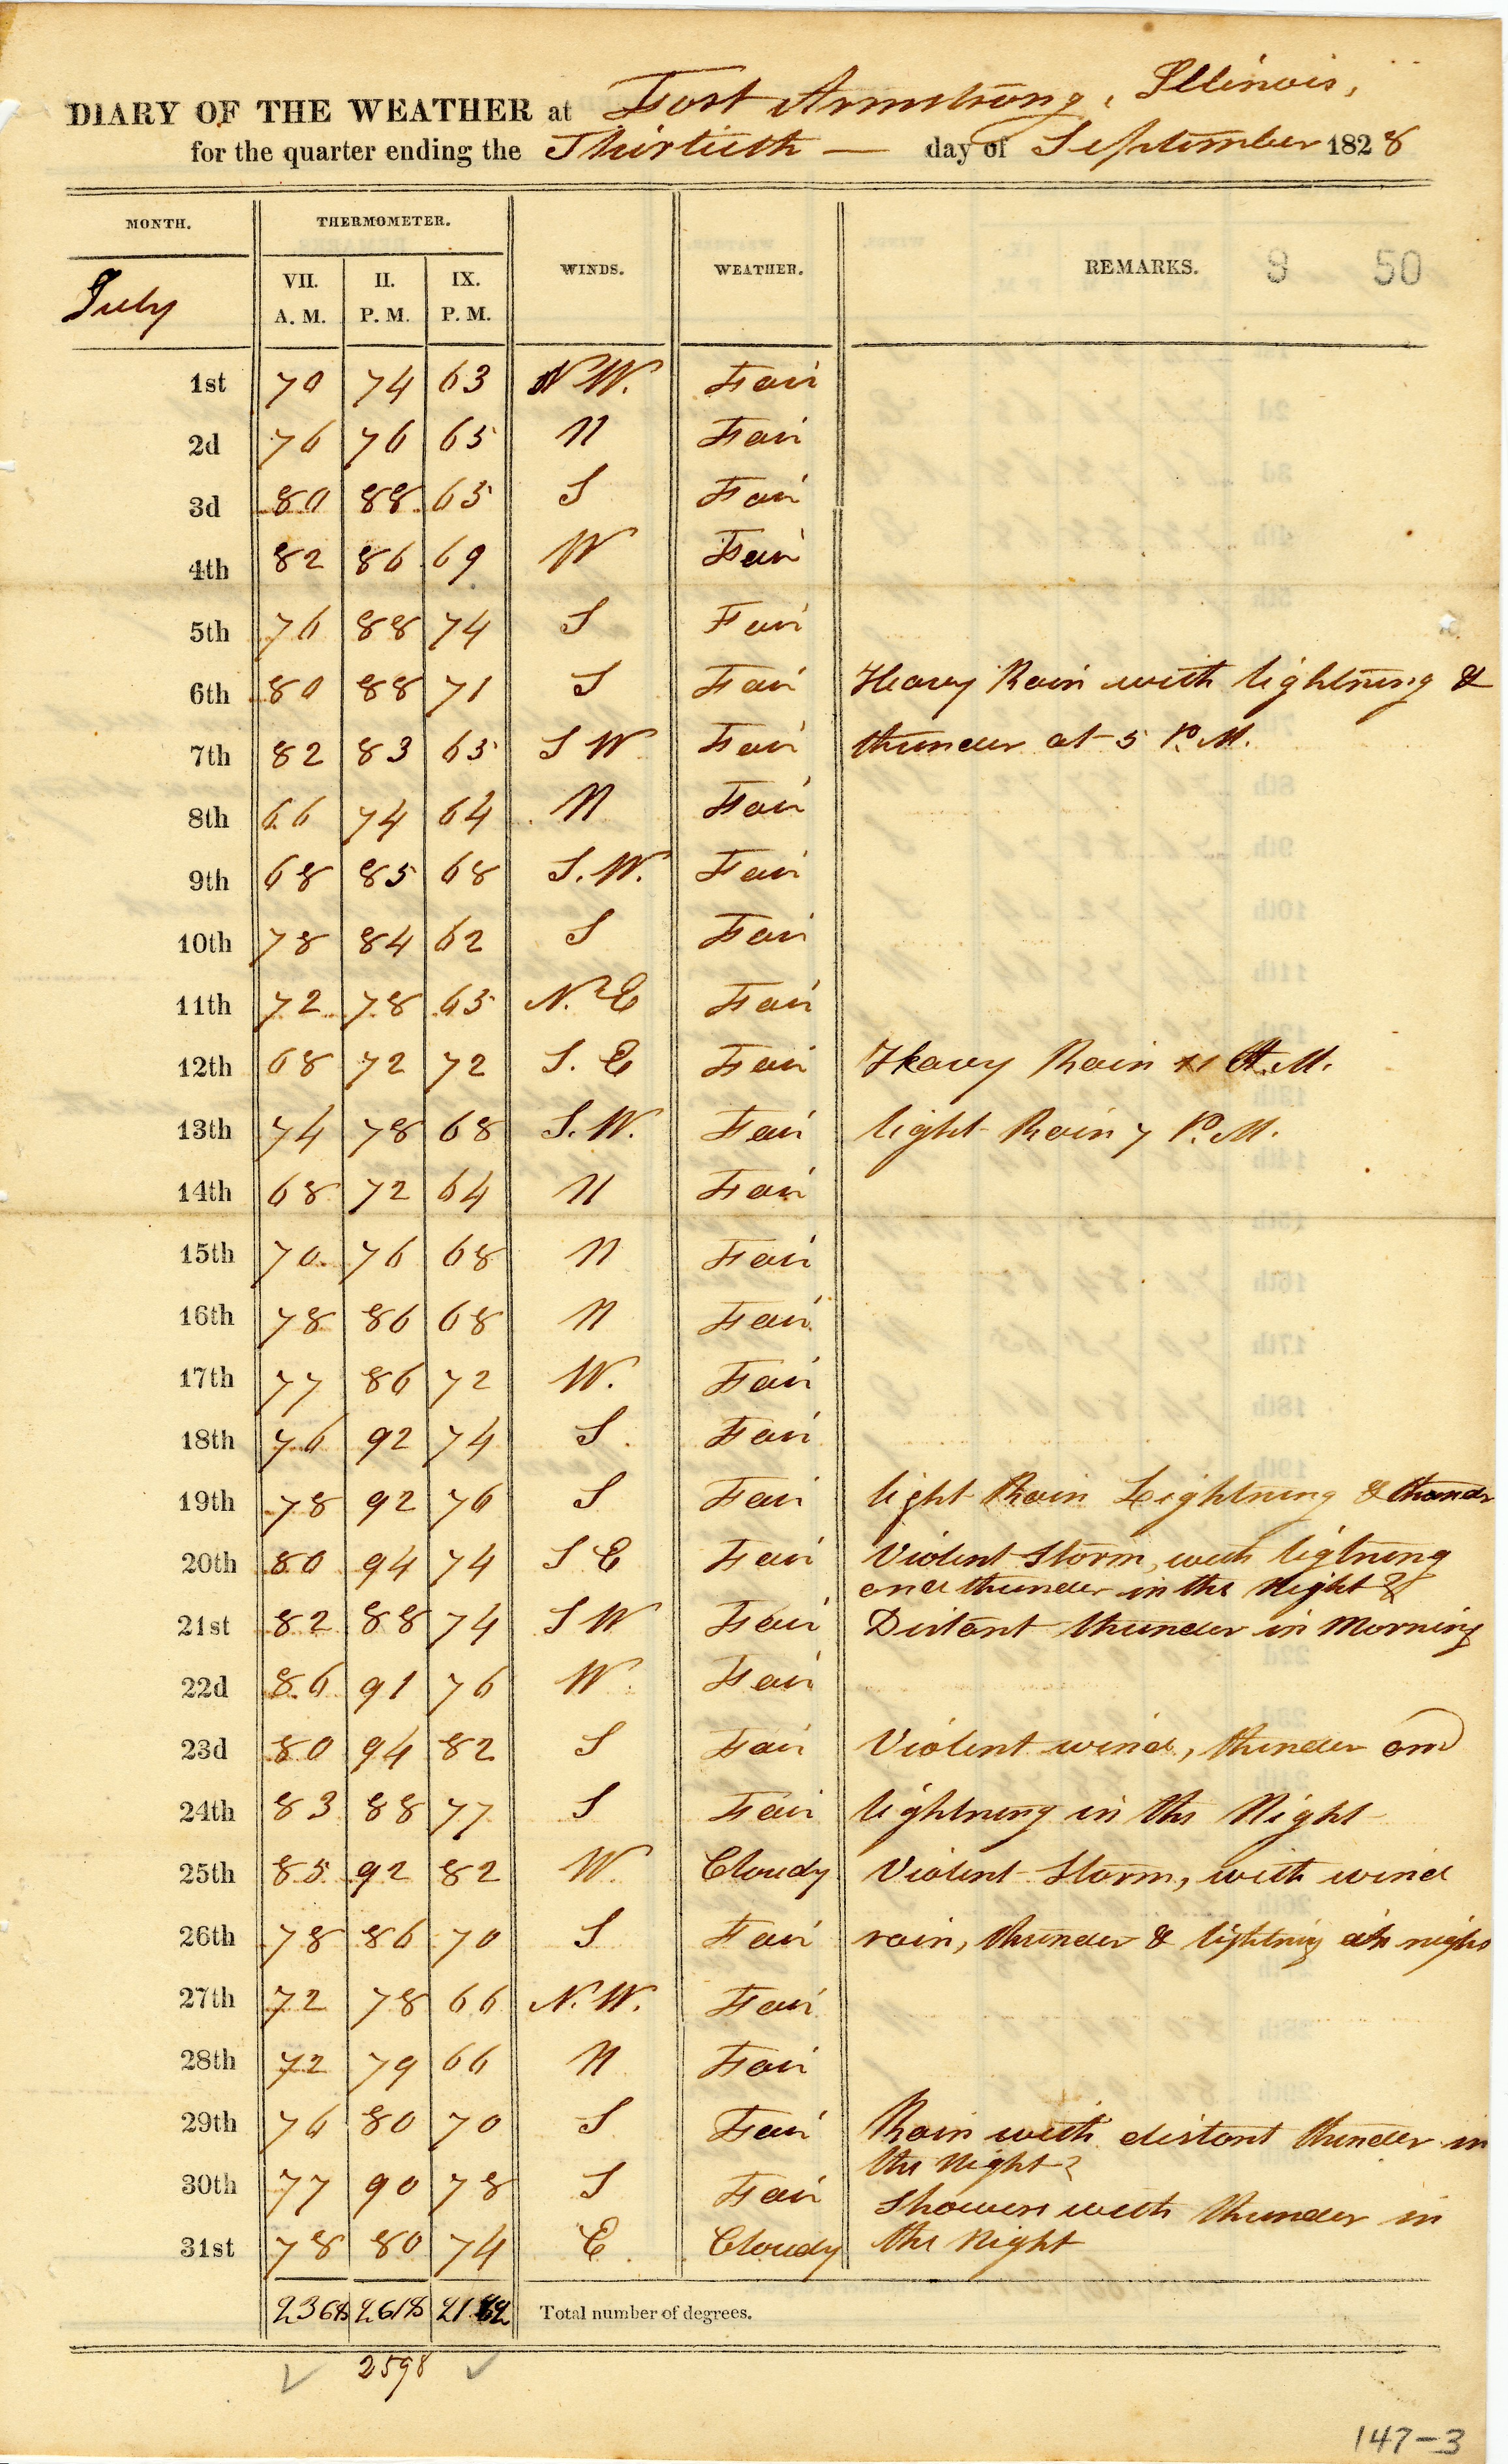 DIARY OF THE WEATHER at Fort Armstrong, Illinois,
for the quarter ending the Thirtieth — day of September 1828
MONTH. THERMOMETER. WINDS. WEATHER. REMARKS. 9 50
July VII. A. M. II. P. M. IX. P. M.
1st 70 74 63 N W. Fair
2d 76 76 65 N Fair
3d 80 88 65 S Fair
4th 82 86 69 W Fair
5th 76 88 74 S Fair
6th 80 88 71 S Fair Heavy Rain with lightning &
7th 82 83 65 S W Fair thunder at 5 P. M.
8th 66 74 64 N Fair
9th 68 85 68 S. W. Fair
10th 78 84 62 S Fair
11th 72 78 65 N. E Fair
12th 68 72 72 S. E Fair Heavy Rain 11 A. M.
13th 74 78 68 S. W. Fair light Rain 7 P. M.
14th 68 72 64 N Fair
15th 70 76 68 N Fair
16th 78 86 68 N Fair
17th 77 86 72 W. Fair
18th 76 92 74 S Fair
19th 78 92 76 S Fair light Rain Lightning & thundr
20th 80 94 74 S E Fair Violent Storm, with ligtning
and thunder in the Night &
21st 82 88 74 S W Fair Distant thunder in Morning
22d 86 91 76 W Fair
23d 80 94 82 S Fair Violent wind, thunder and
24th 83 88 77 S Fair lightning in the Night
25th 85 92 82 W. Cloudy Violent Storm, with wind
26th 78 86 70 S Fair rain, thunder & lightnig
27th 72 78 66 N. W. Fair
28th 72 79 66 N Fair
29th 76 80 70 S Fair Rain with distant thunder in
the Night
30th 77 90 78 S Fair Showers with thunder in
31st 78 80 74 E Cloudy the Night
2368 2618 2182 Total number of degrees.
2598
147-3